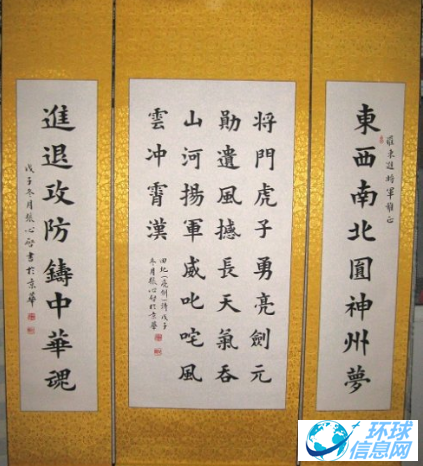 東西南北圓神州夢
羅東進將軍雅正
将門虎子勇亮劍元
勛遺風撼長天氣吞
山河揚軍威叱咤風
雲冲霄漢
詩戊子
冬月張心智於京華
進退攻防鑄中華魂
戊子冬月張心智書於京華
环球
信息网